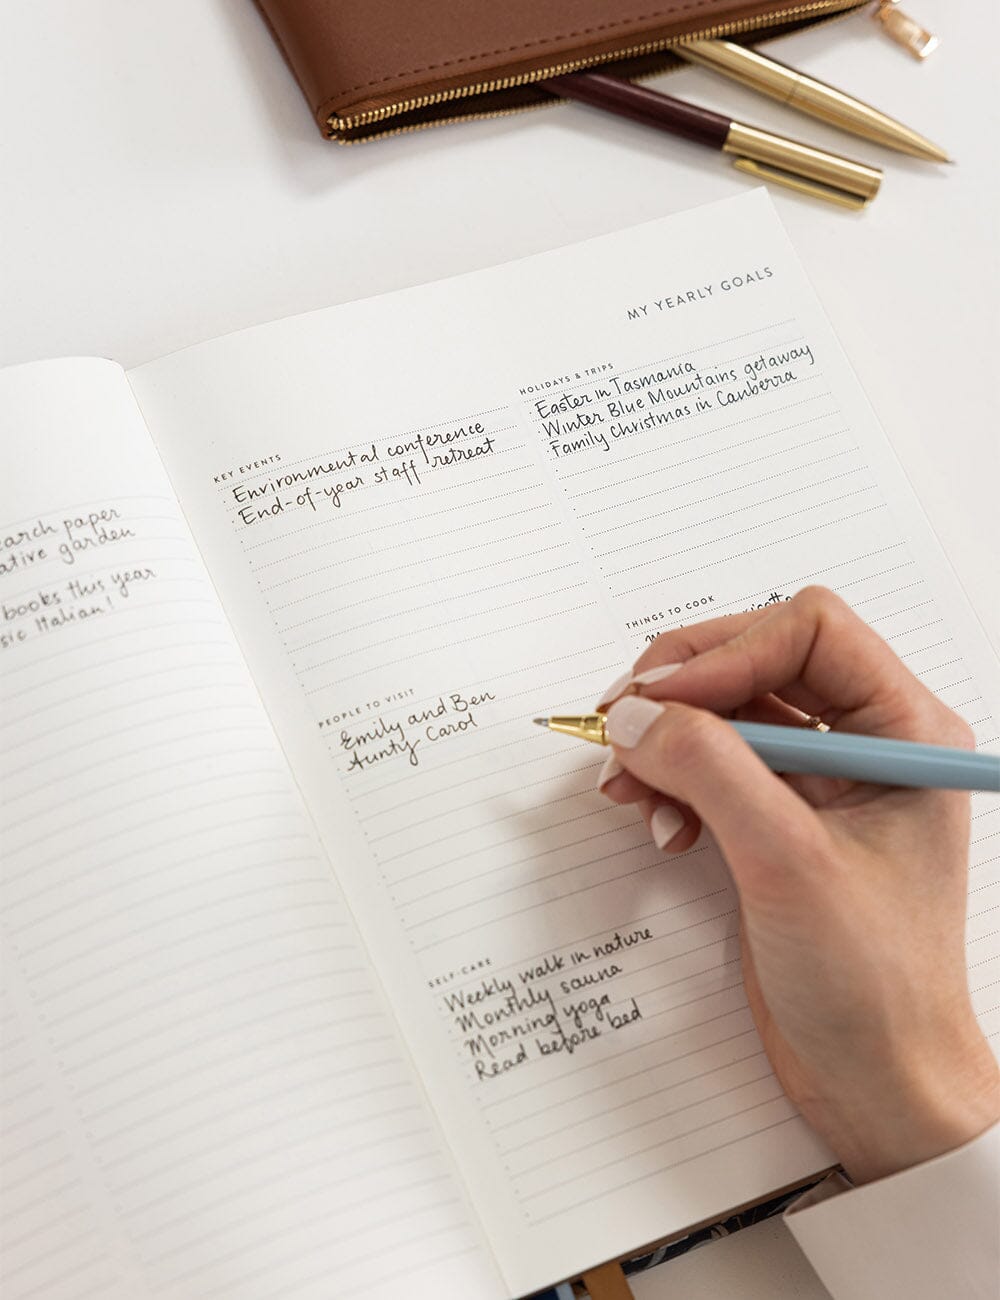 paper
garden
books this year
Italian!
MY YEARLY GOALS
KEY EVENTS
Environmental conference
End-of-year staff retreat
HOLIDAYS & TRIPS
Easter in Tasmania
Winter Blue Mountains getaway
Family Christmas in Canberra
PEOPLE TO VISIT
Emily and Ben
Aunty Carol
THINGS TO COOK
SELF-CARE
Weekly walk in nature
Monthly sauna
Morning yoga
Read before bed